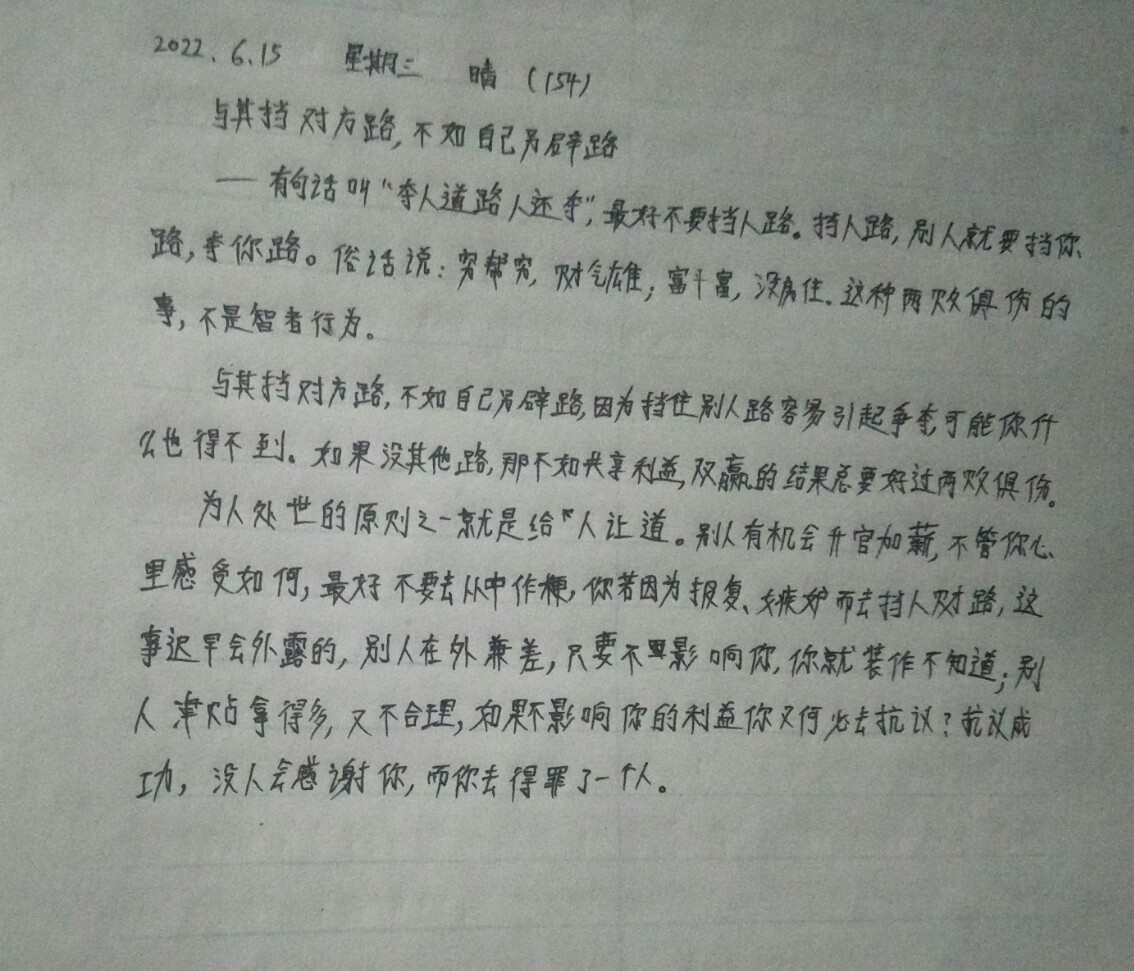 2022.6.15 星期三 晴 (154)
与其挡对方路,不如自己另辟路
— 有句话叫“夺人道路人还夺”,最好不要挡人路。挡人路,别人就要挡你
路,夺你路。俗话说:穷帮穷,财气雄;富斗富,没房住.这种两败俱伤的
事,不是智者行为。
与其挡对方路,不如自己另辟路,因为挡住别人路容易引起争夺,可能你什
么也得不到。如果没其他路,那不如共享利益,双赢的结果总要好过两败俱伤。
为人处世的原则之一就是给人让道。别人有机会升官加薪,不管你心
里感受如何,最好不要去从中作梗,你若因为报复、嫉妒而去挡人财路,这
事迟早会外露的,别人在外兼差,只要不影响你,你就装作不知道;别
人津贴拿得多,又不合理,如果不影响你的利益你又何必去抗议?抗议成
功,没人会感谢你,而你去得罪了一个人。